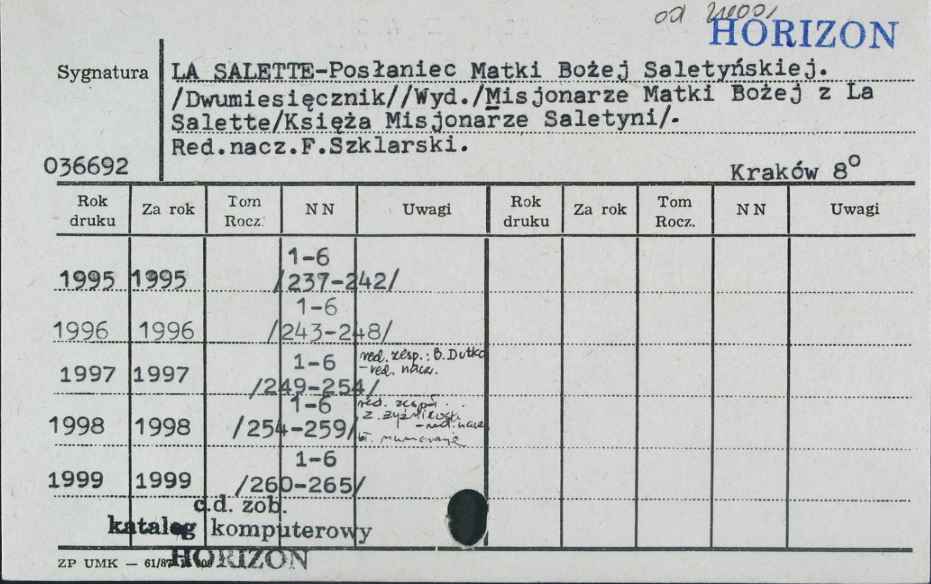 od 2000,
HORIZON
Sygnatura
LA SALETTE-Posłaniec Matki Bożej Saletyńskiej.
/Dwumiesięcznik//Wyd./Misjonarze Matki Bożej z La
Salette/Księża Misjonarze Saletyni/.
Red.nacz.F.Szklarski.
036692
Kraków 8°
Rok druku Za rok Tom Rocz. NN Uwagi Rok druku Za rok Tom Rocz. NN Uwagi
1-6
1995 1995 /237-242/
1-6
1996 1996 /243-248/
1-6 red. zesp.: B. Dutka
1997 1997 - red. nacz.
/249-254/
1-6 red. zespół
1998 1998 /254-259/ - red. nacz.
1-6
1999 1999 /260-265/
c.d. zob.
katalog komputerowy
HORIZON
ZP UMK — 61/87